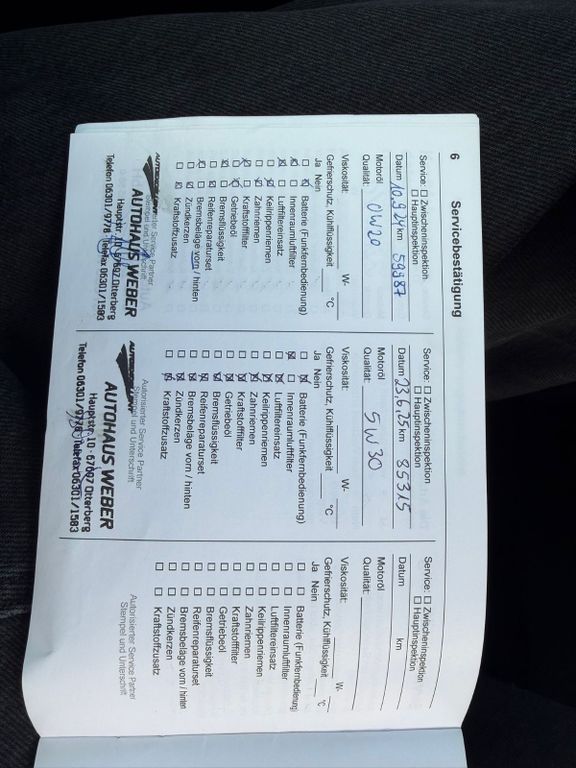 6
Servicebestätigung
Service: ☐ Zwischeninspektion
☐ Hauptinspektion
Datum 10.9.24 km 59387
Motoröl
Qualität: 0W20
Viskosität: W-
Gefrierschutz, Kühlflüssigkeit °C
Ja Nein
Batterie (Funkfernbedienung)
Innenraumluftfilter
Luftfiltereinsatz
Keilrippenriemen
Zahnriemen
Kraftstofffilter
Getriebeöl
Bremsflüssigkeit
Reifenreparaturset
Bremsbeläge vorn / hinten
Zündkerzen
Kraftstoffzusatz
Autorisierter Service Partner
Stempel und Unterschrift
AUTOHAUS WEBER
Hauptstr. 10 · 67697 Otterberg
Telefon 06301/9778 Telefax 06301/1503
Service: ☐ Zwischeninspektion
☐ Hauptinspektion
Datum 23.6.25 km 85315
Motoröl
Qualität: 5W30
Viskosität: W-
Gefrierschutz, Kühlflüssigkeit °C
Ja Nein
Batterie (Funkfernbedienung)
Innenraumluftfilter
Luftfiltereinsatz
Keilrippenriemen
Zahnriemen
Kraftstofffilter
Getriebeöl
Bremsflüssigkeit
Reifenreparaturset
Bremsbeläge vorn / hinten
Zündkerzen
Kraftstoffzusatz
Autorisierter Service Partner
Stempel und Unterschrift
AUTOHAUS WEBER
Hauptstr. 10 · 67697 Otterberg
Telefon 06301/9778 Telefax 06301/1503
Service: ☐ Zwischeninspektion
☐ Hauptinspektion
Datum km
Motoröl
Qualität:
Viskosität: W-
Gefrierschutz, Kühlflüssigkeit °C
Ja Nein
☐ ☐ Batterie (Funkfernbedienung)
☐ ☐ Innenraumluftfilter
☐ ☐ Luftfiltereinsatz
☐ ☐ Keilrippenriemen
☐ ☐ Zahnriemen
☐ ☐ Kraftstofffilter
☐ ☐ Getriebeöl
☐ ☐ Bremsflüssigkeit
☐ ☐ Reifenreparaturset
☐ ☐ Bremsbeläge vorn / hinten
☐ ☐ Zündkerzen
☐ ☐ Kraftstoffzusatz
Autorisierter Service Partner
Stempel und Unterschrift